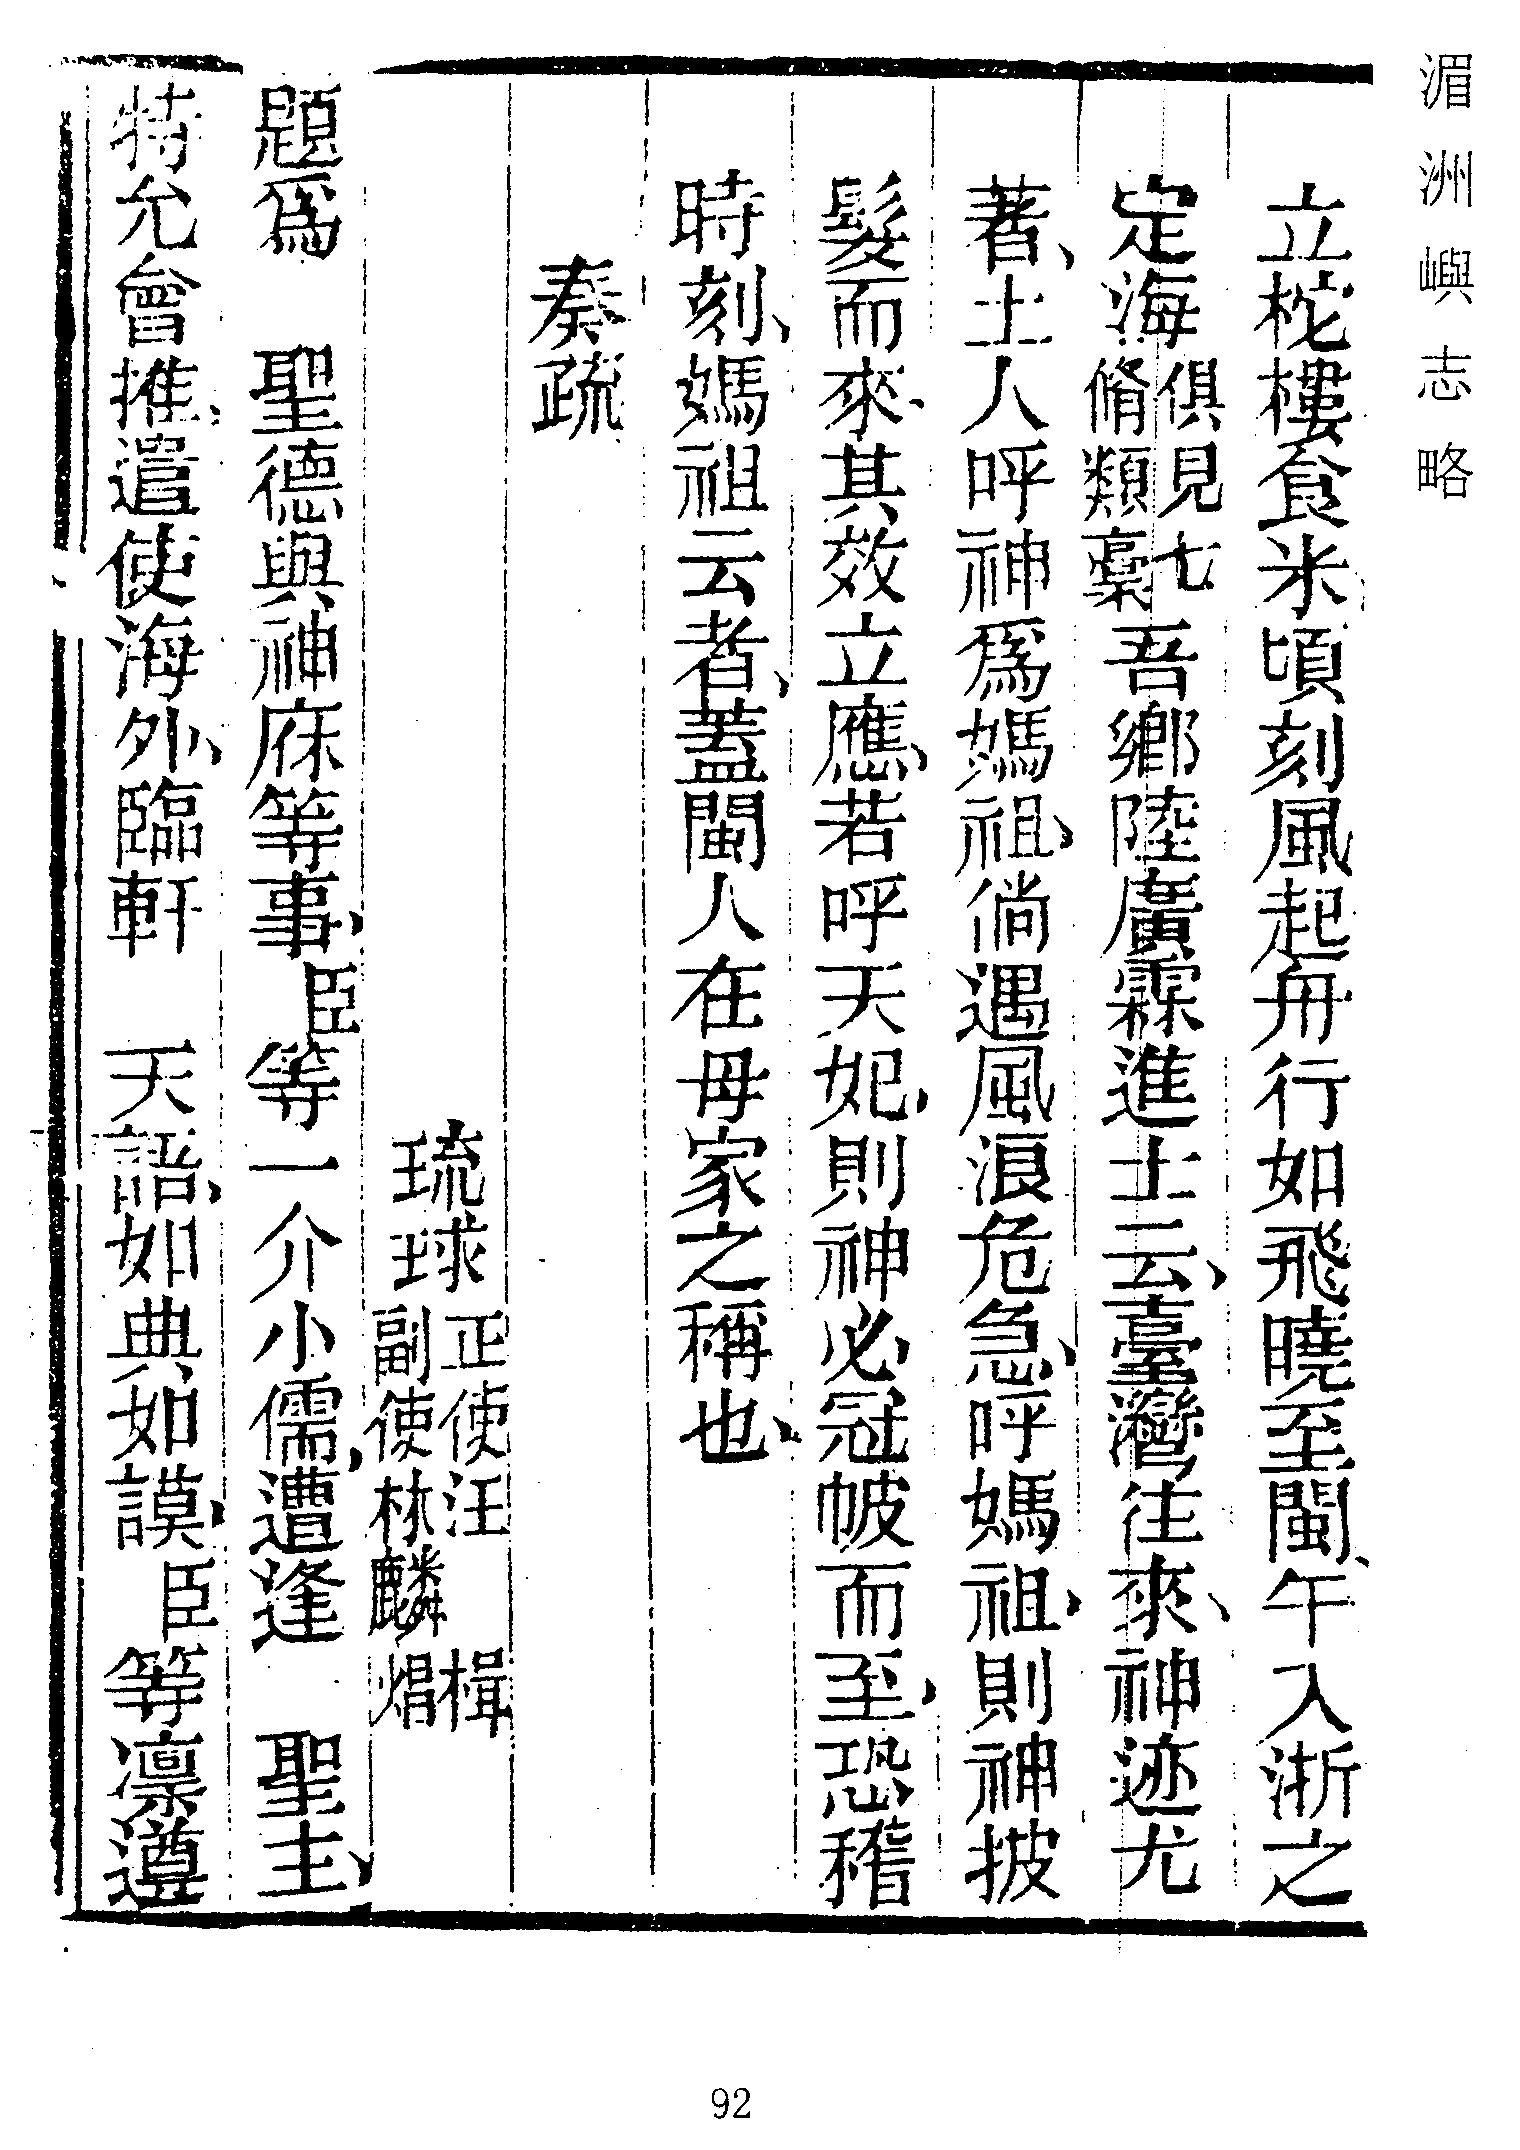 湄洲嶼志略
立柁樓食米頃刻風起舟行如飛曉至閩、午入浙之
定海俱見七脩類藁吾鄉陸廣霖進士云、臺灣往來、神迹尤
著、土人呼神爲媽祖、倘遇風浪危急、呼媽祖、則神披
髮而來、其效立應、若呼天妃、則神必冠帔而至、恐稽
時刻、媽祖云者、蓋閩人在母家之稱也、
奏疏
琉球正使汪楫副使林麟焻
題爲 聖德與神庥等事、臣等一介小儒、遭逢 聖主、
特允會推、遣使海外、臨軒 天語、如典如謨、臣等凛遵
92